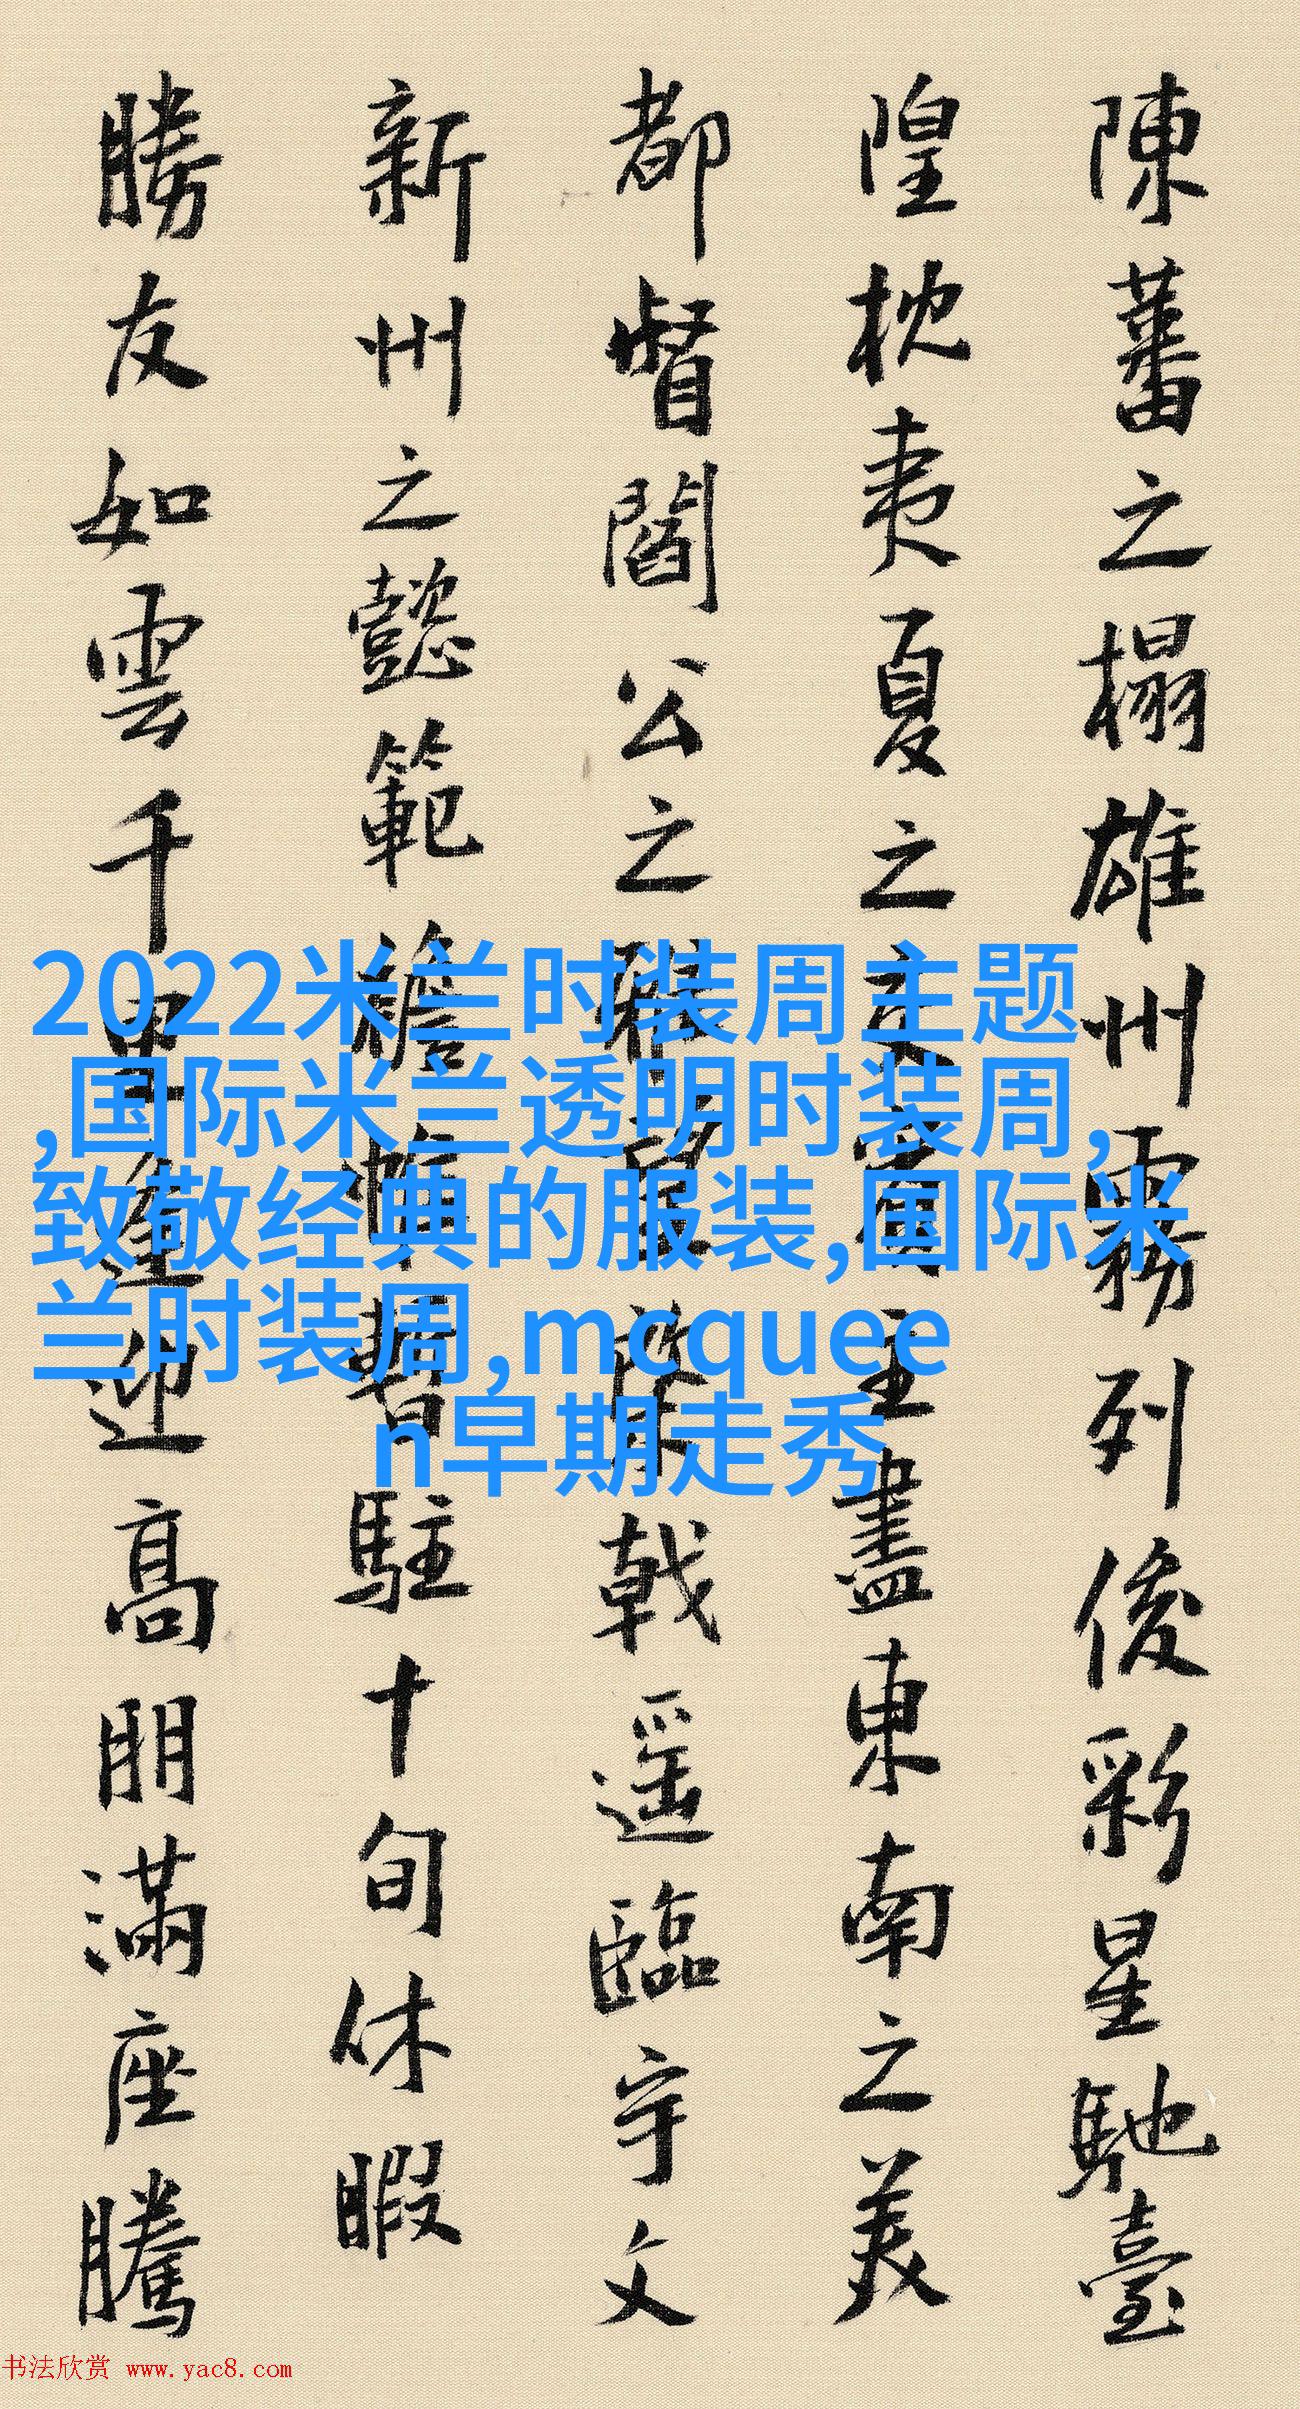 陳蕃之榻雄州霧列俊彩星馳臺
隍枕夷夏之交賓主盡東南之美
都督閻公之雅望棨戟遥臨宇文
新州之懿範襜帷暫駐十旬休暇
勝友如雲千里逢迎高朋滿座騰
2022米兰时装周主题
,国际米兰透明时装周,
致敬经典的服装,国际米
兰时装周,mcquee
n早期走秀
书法欣赏 www.yac8.com